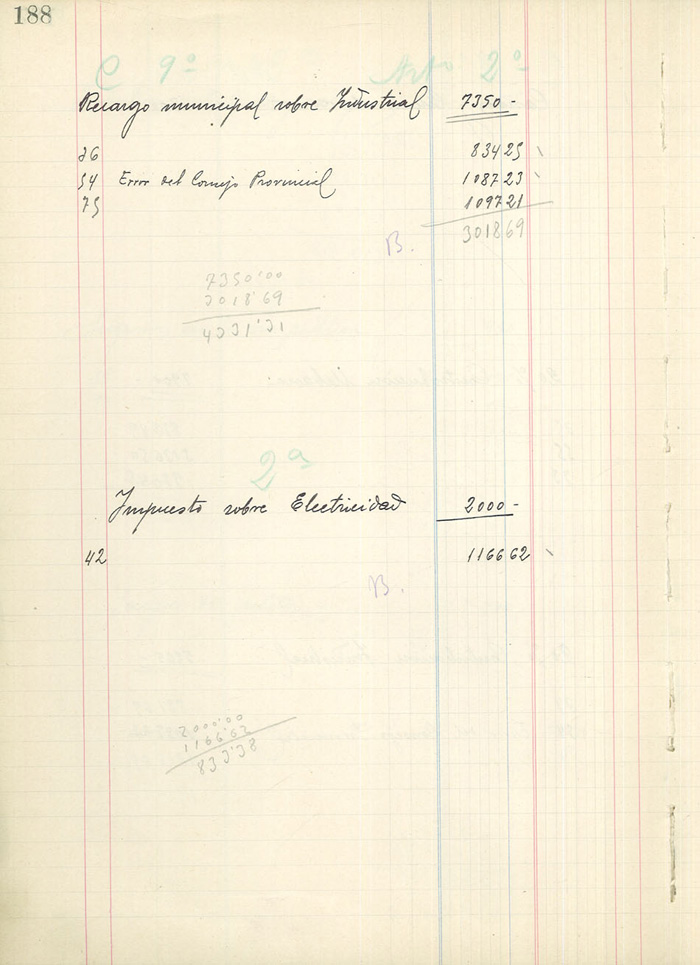 188
C 9º Artº 2º
Recargo municipal sobre Industrial 7350-
36 834 25
54 Error del Consejo Provincial 1087 23
75 1097 21
3018 69
B.
7350'00
3018'69
4331'31
2ª
Impuesto sobre Electricidad 2000-
42 1166 62
B.
2000.00
1166.62
833'38